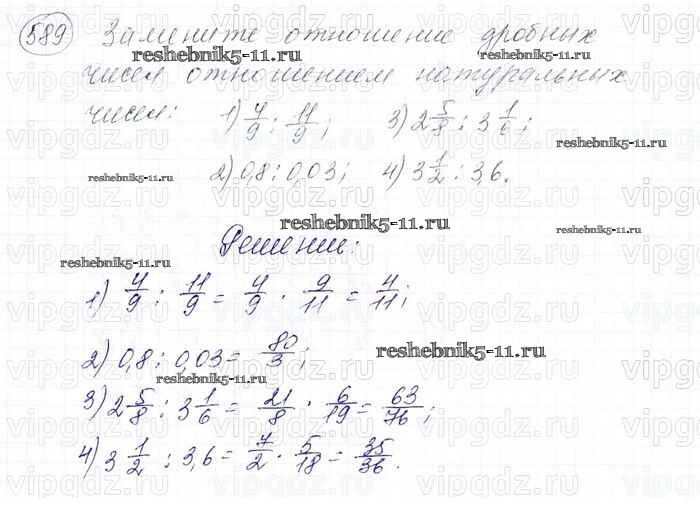 589 Замените отношение дробных
чисел отношением натуральных
чисел: 1) 4/9 : 11/9; 3) 2 5/8 : 3 1/6;
2) 0,8 : 0,03; 4) 3 1/2 : 3,6.
Решение:
1) 4/9 : 11/9 = 4/9 · 9/11 = 4/11;
2) 0,8 : 0,03 = 80/3;
3) 2 5/8 : 3 1/6 = 21/8 · 6/19 = 63/76;
4) 3 1/2 : 3,6 = 7/2 · 5/18 = 35/36.
reshebnik5-11.ru
reshebnik5-11.ru
reshebnik5-11.ru
reshebnik5-11.ru
reshebnik5-11.ru
reshebnik5-11.ru
reshebnik5-11.ru
reshebnik5-11.ru
reshebnik5-11.ru
vipgdz.ru